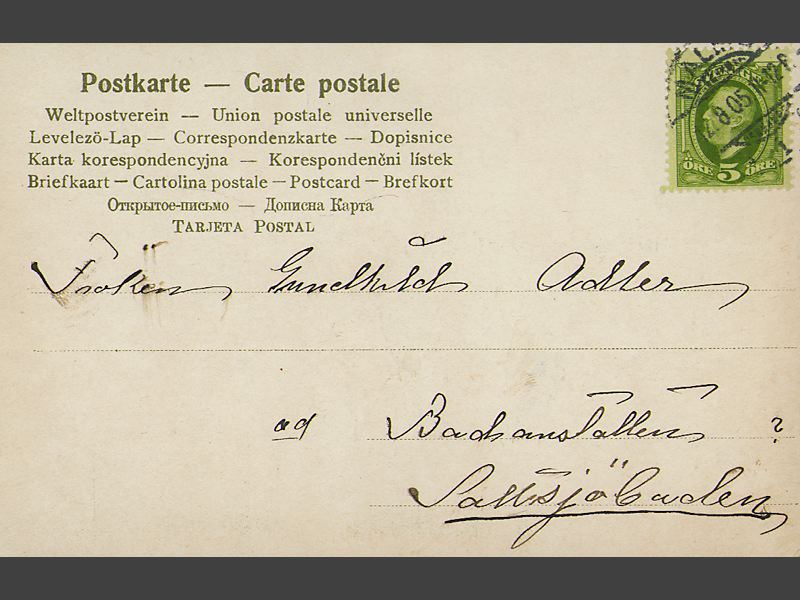 Postkarte — Carte postale
Weltpostverein — Union postale universelle
Levelezö-Lap — Correspondenzkarte — Dopisnice
Karta korespondencyjna — Korespondenčni lístek
Briefkaart — Cartolina postale — Postcard — Brefkort
Открытое-письмо — Дописна Карта
TARJETA POSTAL
ÖRE 5 ÖRE
Fröken Gunhild Adler
Badanstalten ?
Saltsjöbaden